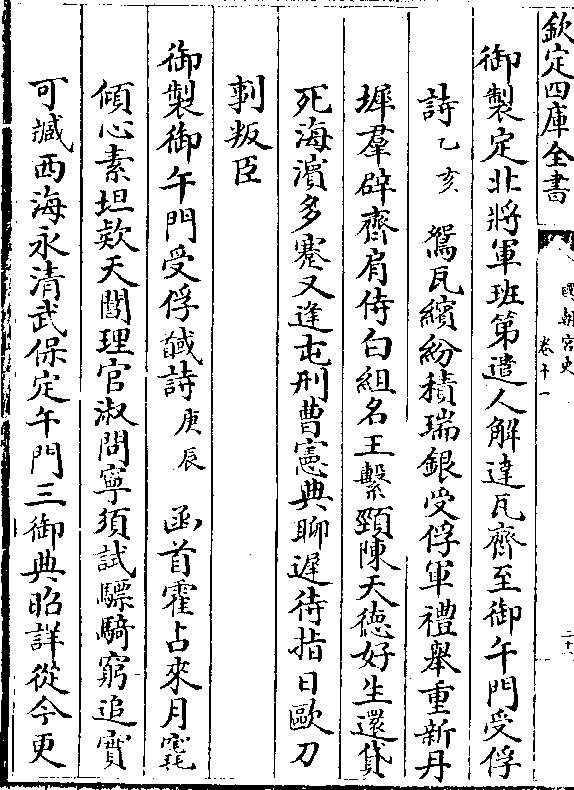 欽定四庫全書
國朝宮史
卷十一
二十
御製定北將軍班第遣人解達瓦齊至御午門受俘
詩乙亥 鴛瓦繽紛積瑞銀受俘軍禮舉重新丹
墀羣辟齊肩侍白組名王繫頸陳天德好生還貸
死海濱多蹇又逢屯刑曹憲典聊遲待指日歐刀
剚叛臣
御製御午門受俘馘詩庚辰 函首霍占來月竁
傾心素坦款天閶理官淑問寧須試驃騎窮追實
可緘西海永清武保定午門三御典昭詳從今更